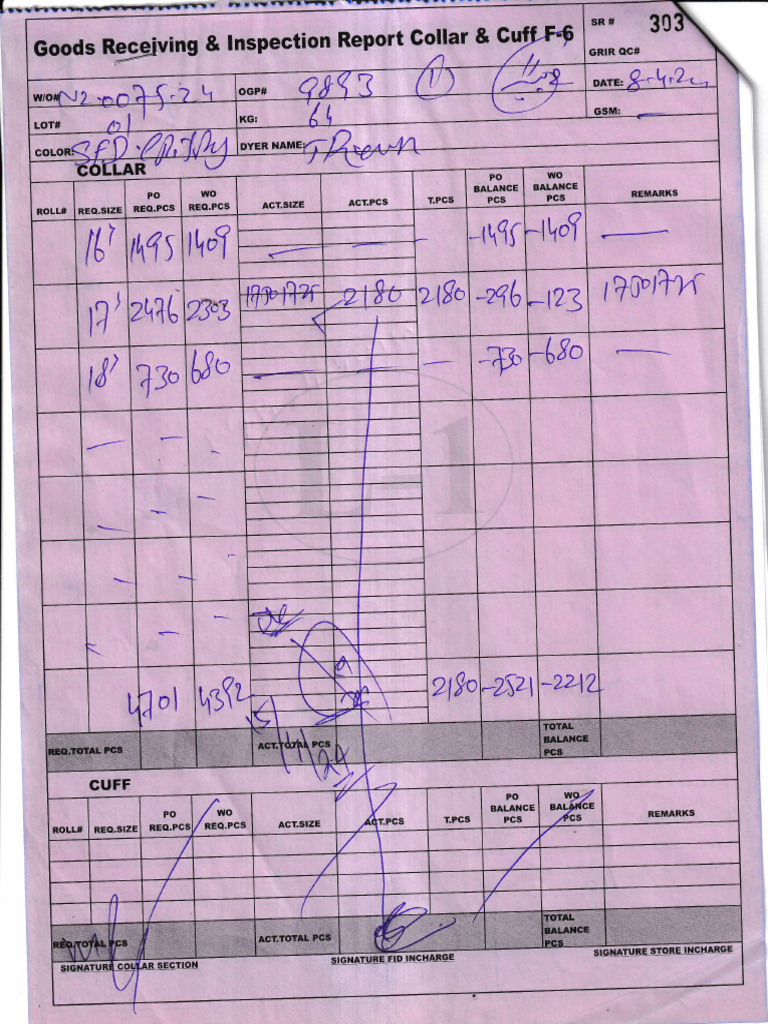 Goods Receiving & Inspection Report Collar & Cuff F-6
SR # 303
GRIR QC#
W/O# N2-0075-24 OGP# 9893 1 DATE: 8.4.24
LOT# 01 KG: 64 GSM: —
COLOR: DYER NAME:
COLLAR
ROLL# REQ.SIZE PO REQ.PCS WO REQ.PCS ACT.SIZE ACT.PCS T.PCS PO BALANCE PCS WO BALANCE PCS REMARKS
16" 1495 1409 — — - -1495 -1409 —
17" 2476 2303 2180 2180 -296 -123
18" 730 680 — — — -730 -680 —
— — -
— — -
— — -
- — -
4701 4392 2180 -2521 -2212
REQ.TOTAL PCS ACT.TOTAL PCS TOTAL BALANCE PCS
CUFF
ROLL# REQ.SIZE PO REQ.PCS WO REQ.PCS ACT.SIZE ACT.PCS T.PCS PO BALANCE PCS WO BALANCE PCS REMARKS
REQ.TOTAL PCS ACT.TOTAL PCS TOTAL BALANCE PCS
SIGNATURE COLLAR SECTION SIGNATURE FID INCHARGE SIGNATURE STORE INCHARGE